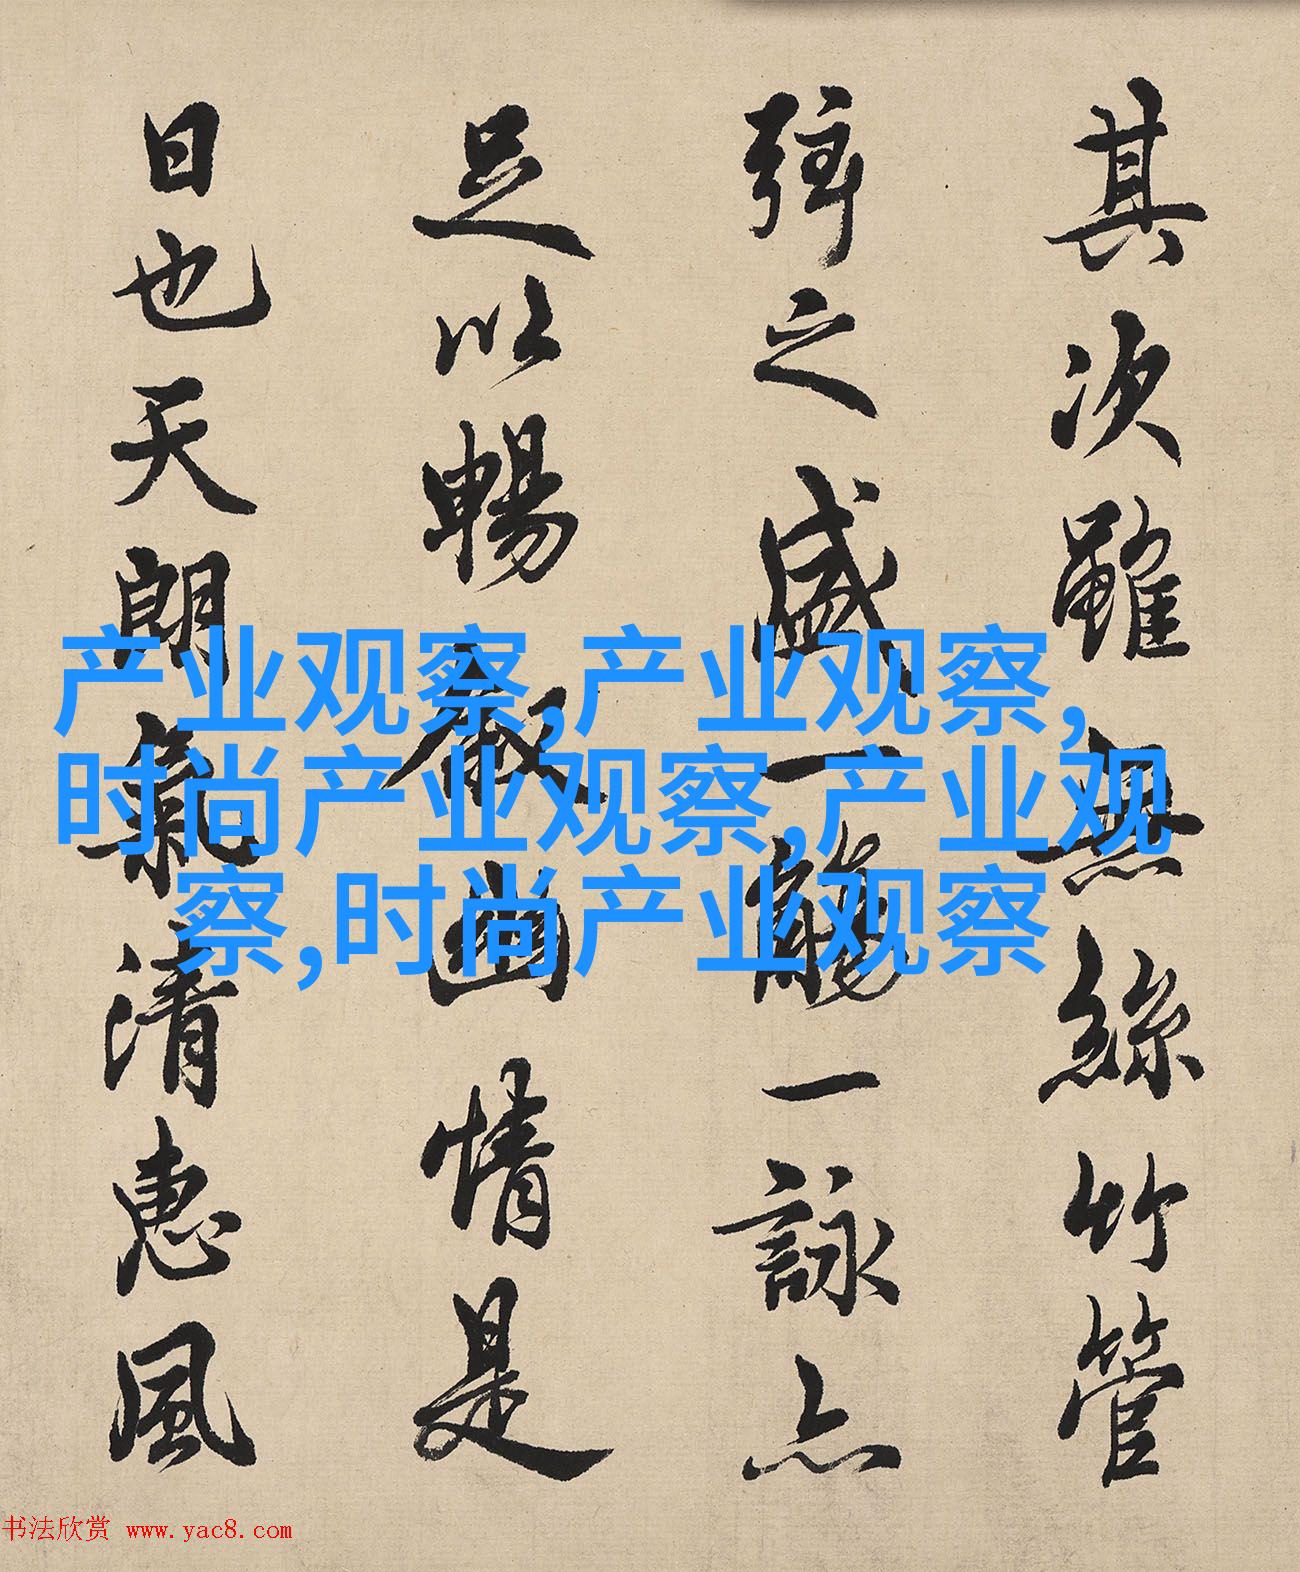 其次雖無絲竹管
弦之盛一觴一詠亦
足以暢叙幽情是
日也天朗氣清惠風
产业观察,产业观察,
时尚产业观察,产业观
察,时尚产业观察
书法欣赏 www.yac8.com